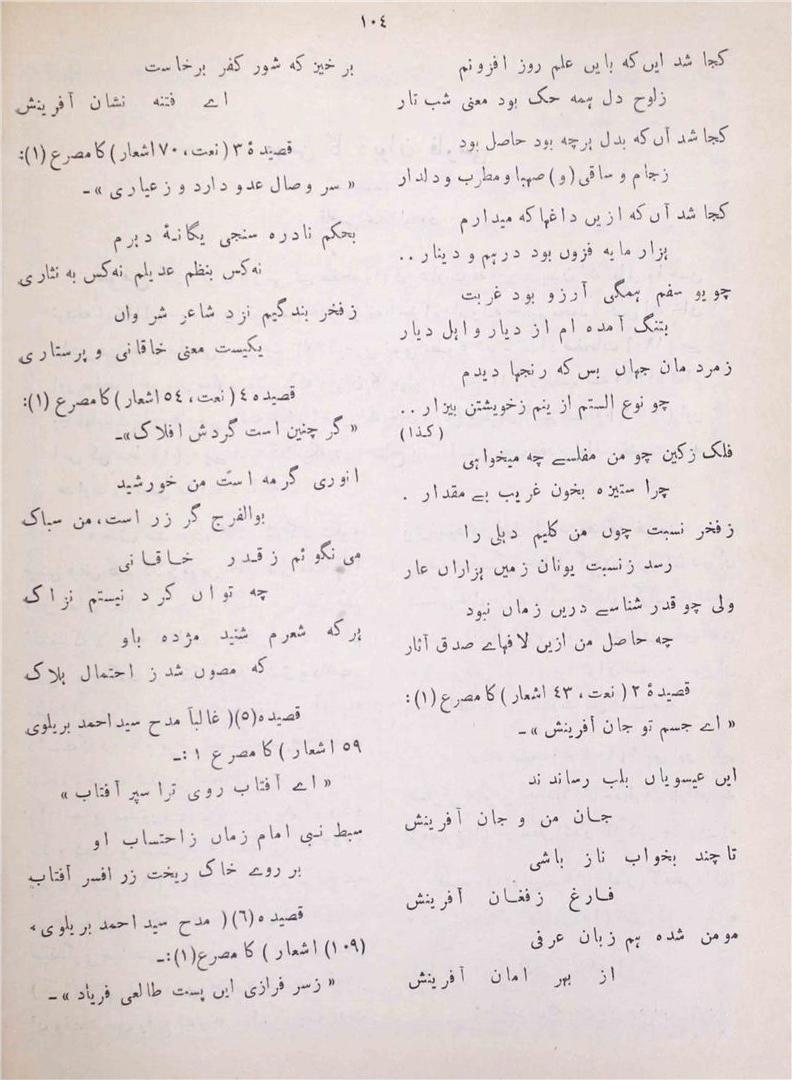 ١٠٤
کجا شد ایں که بایں علم روز افزونم
زلوح دل ہمه حک بود معنی شب تار
کجا شد آں که بدل ہرچه بود حاصل بود
زجام و ساقی (و) صہبا و مطرب و دلدار
کجا شد آں که ازیں داغہا که میدارم
ہزار مایه فزوں بود درہم و دینار ..
چو یو سفم ہمگی آرزو بود غربت
بتنگ آمدہ ام از دیار و اہل دیار
زمردمان جہاں بس که رنجہا دیدم
چو نوع الستم از ینم زخویشتن بیزار ..
(کذا)
فلک زکین چو من مفلسے چه میخواہی
چرا ستیزہ بخون غریب بے مقدار .
زفخر نسبت چوں من کلیم دہلی را
رسد زنسبت یونان زمیں ہزاراں عار
ولی چو قدر شناسے دریں زماں نبود
چه حاصل من ازیں لافہاے صدق آثار
قصیدۂ ۲ (نعت، ٤۳ اشعار) کا مصرع (۱):
« اے جسم تو جان آفرینش »ـ
ایں عیسویاں بلب رساندند
جـان من و جان آفرینش
تا چند بخواب ناز باشی
فـارغ زفغـان آفرینش
مومن شدہ ہم زبان عرفی
از بہر امان آفرینش
بر خیز که شور کفر برخاست
اے فتنه نشان آفرینش
قصیدۂ ۳ (نعت، ۷۰ اشعار) کا مصرع (۱):
« سر وصال عدو دارد و زعیاری »ـ
بحکم نادرہ سنجی یگانۂ دہرم
نه کس بنظم عدیلم نه کس به نثاری
زفخر بندگیم نزد شاعر شرواں
یکیست معنی خاقانی و پرستاری
قصیدہ ٤ (نعت، ٥٤ اشعار) کا مصرع (۱):
« گر چنین است گردش افلاک»ـ
انوری گرمه است من خورشید
بوالفرج گر زر است، من سباک
می نگوئم زقـدر خـاقـانی
چه تواں کرد نیستم نزاک
ہرکه شعرم شنید مژدہ باو
که مصوں شد ز احتمال ہلاک
قصیدہ(٥)( غالباً مدح سید احمد بریلوی
٥٩ اشعار) کا مصرع ۱:ـ
« اے آفتاب روی ترا سپر آفتاب »
سبط نبی امام زماں زاحتساب او
بر روے خاک ریخت زر افسر آفتاب
قصیدہ(٦)( مدح سید احمد بریلوی،
(١٠٩) اشعار) کا مصرع(١):ـ
« زسر فرازی ایں پست طالعی فریاد »ـ